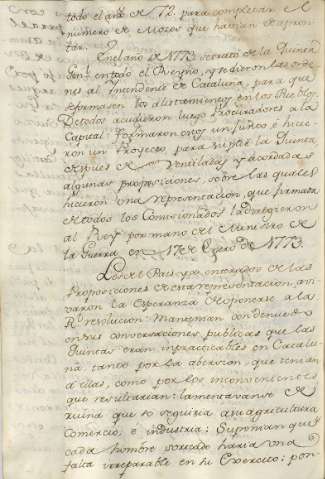 todo el año de 72 para completar el
numero de Mozos que havian de apron-
tar.
En el año de 1773 se trató de la Quinta
Gen.l en todo el Reyno, y se dieron las orde-
nes al Intendente de Cataluña, para que
se formasen los alistamientos en los Pueblos.
De todos acudieron luego Procuradores a la
Capital: formaron estos un junta é hicie-
ron un Proyecto para suplir la Quinta
despues de ventiladas y acordadas
algunas proposiciones, sobre las quales
hicieron una representacion, que firmada
de todos los Comisionados la dirigieron
al Rey por mano del Ministro de
la Guerra en 17 de Enero de 1773.
Los del Pais ya enterados de las
Proposiciones de esta representacion, avi-
varon la esperanza de oponerse a la
R.l resolucion: Manejman con denuedo
en sus conversaciones publicas que las
Quintas eran impracticables en Catalu-
ña, tanto por la aversion, que tenian
a ellas, como por los inconvenientes
que resultarian: lamentavanse de
ruina que se seguiria a su agricultura
Comercio, é industria: Suponian que
cada hombre sorteado haria una
falta irreparable en su Exercicio; pon-